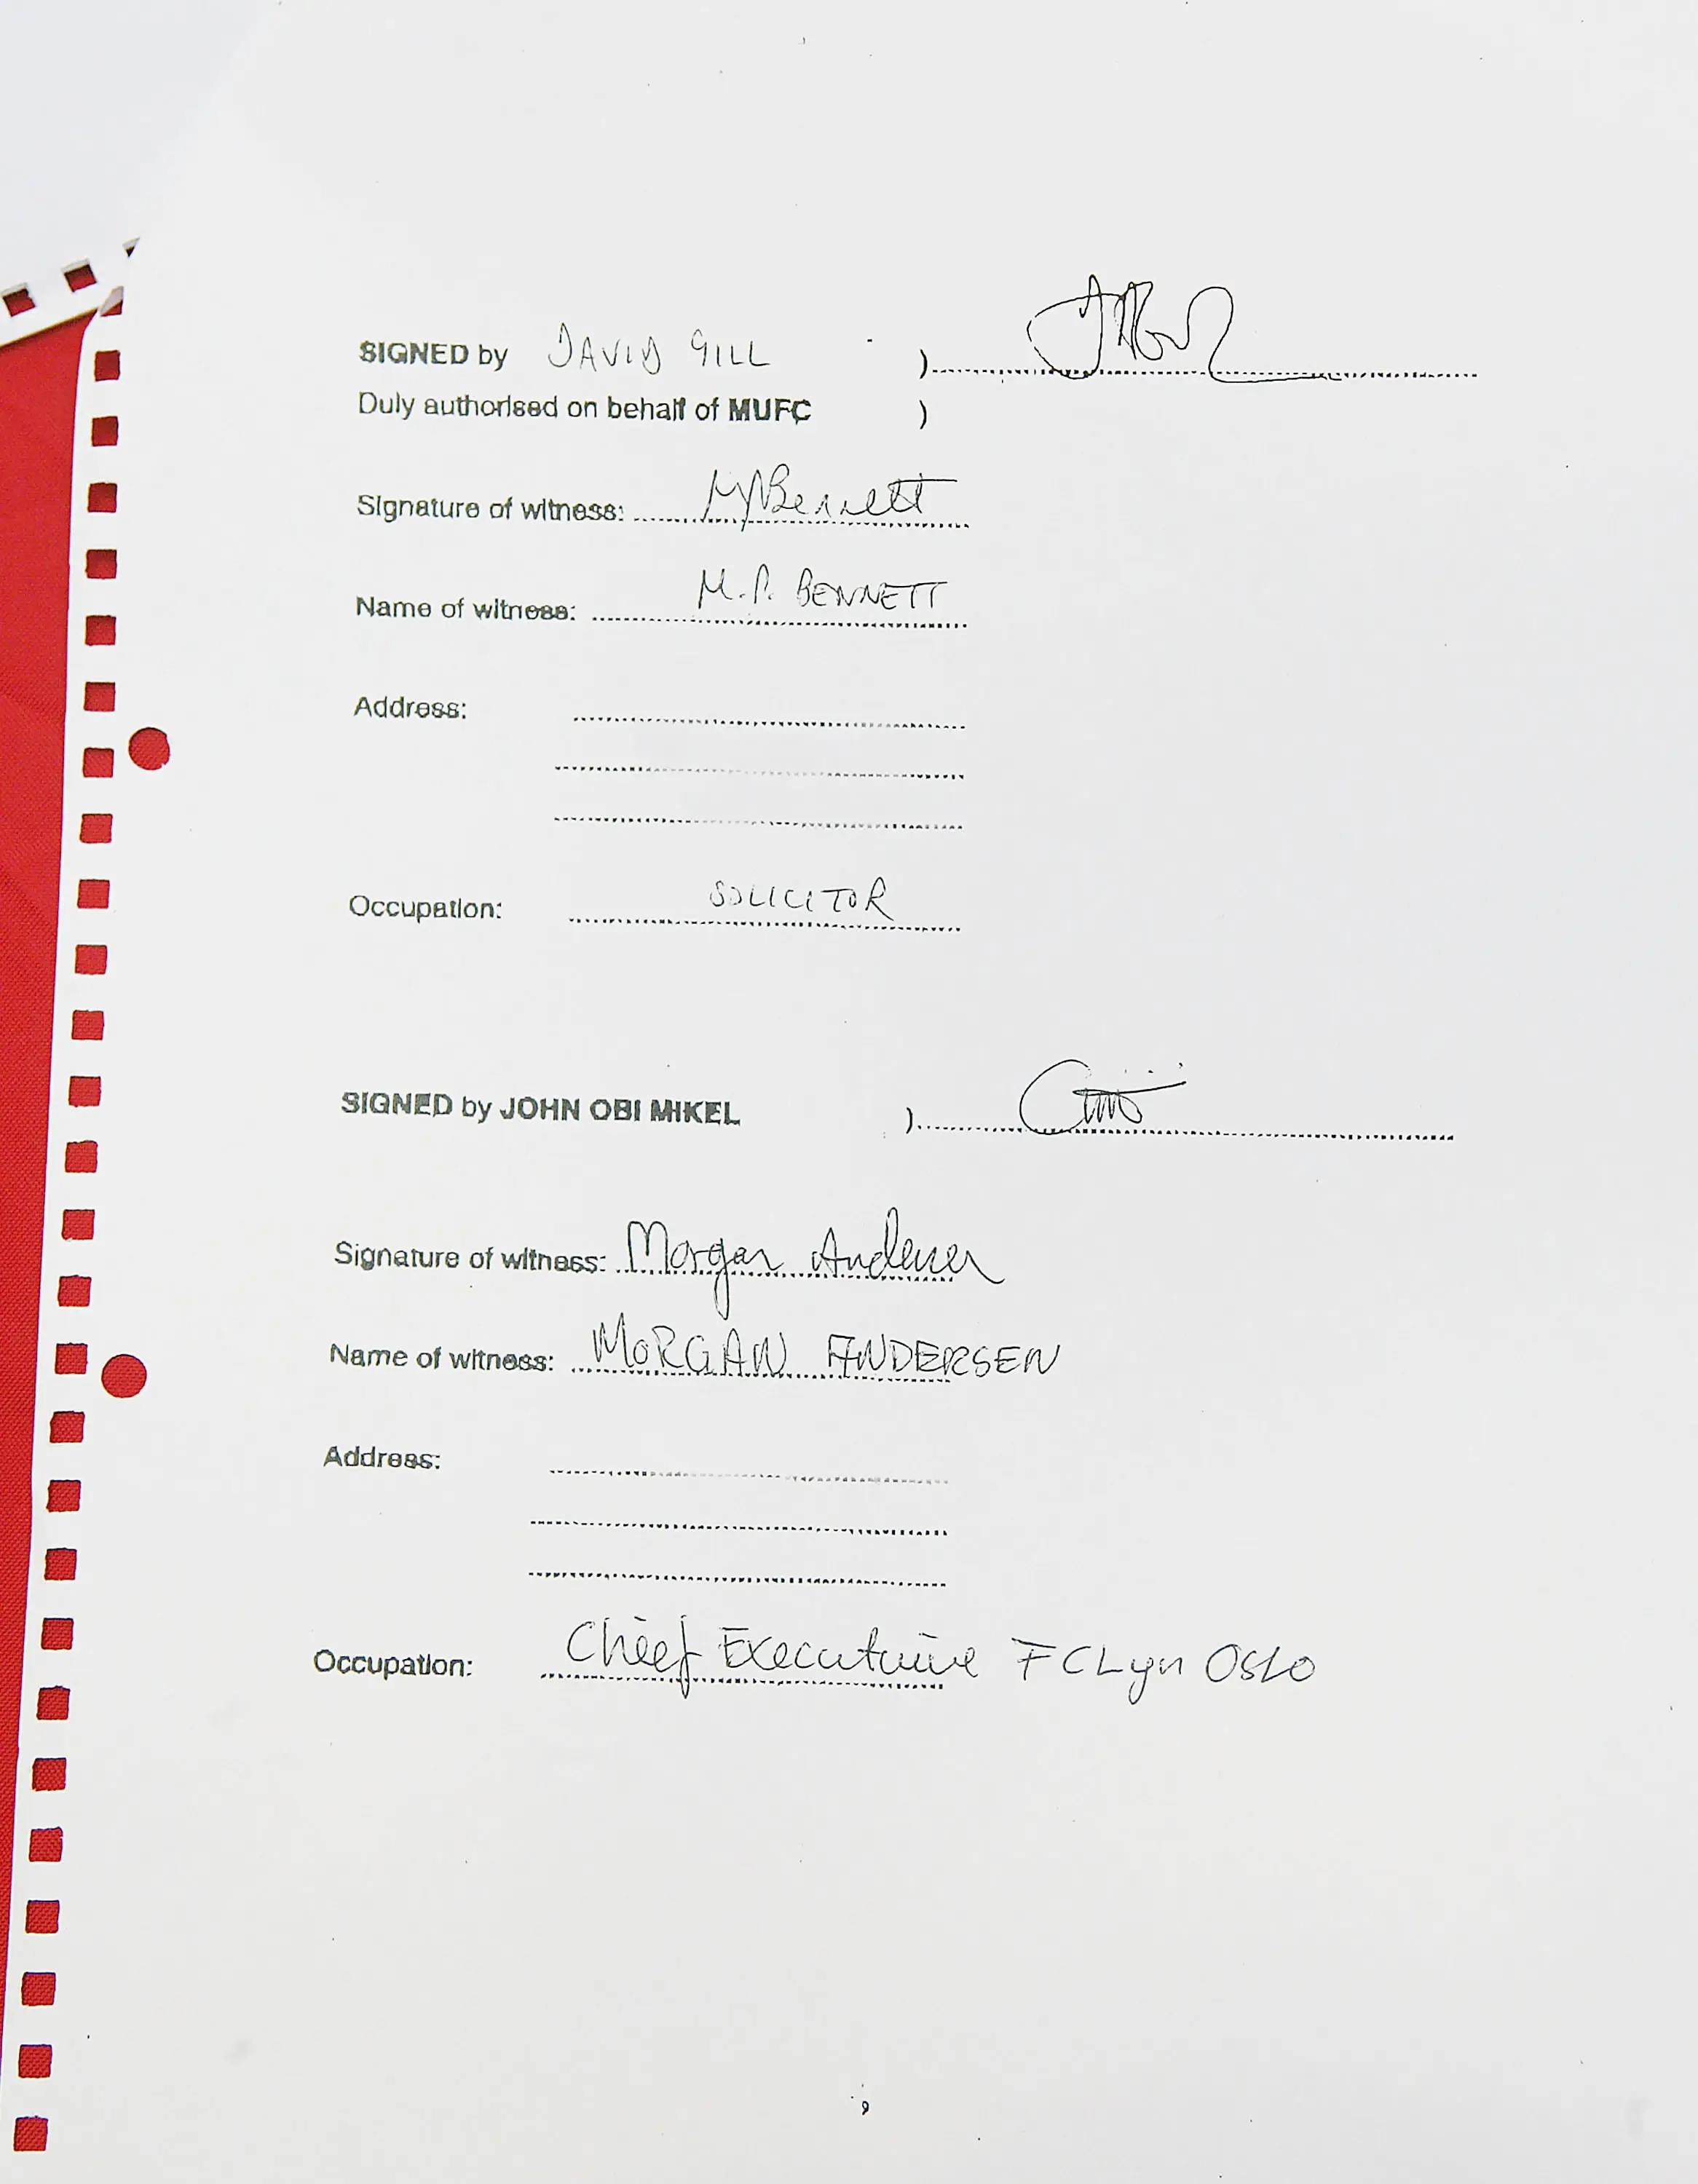 SIGNED by DAVID GILL )
Duly authorised on behalf of MUFC )
Signature of witness: MPBennett
Name of witness: M.P. BENNETT
Address:
Occupation: SOLICITOR
SIGNED by JOHN OBI MIKEL )
Signature of witness: Morgan Andersen
Name of witness: MORGAN ANDERSEN
Address:
Occupation: Chief Executive FC Lyn Oslo
9